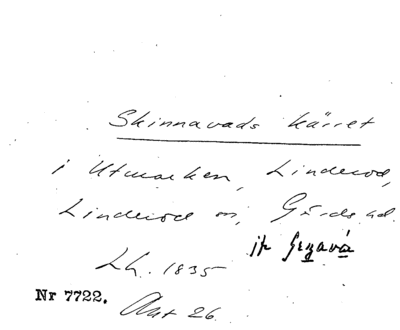 Skinnavads kärret
i Utmarken, Linderöd,
Linderöds sn, Gärds hd.
Lh. 1835
Nr 7722. Akt 26